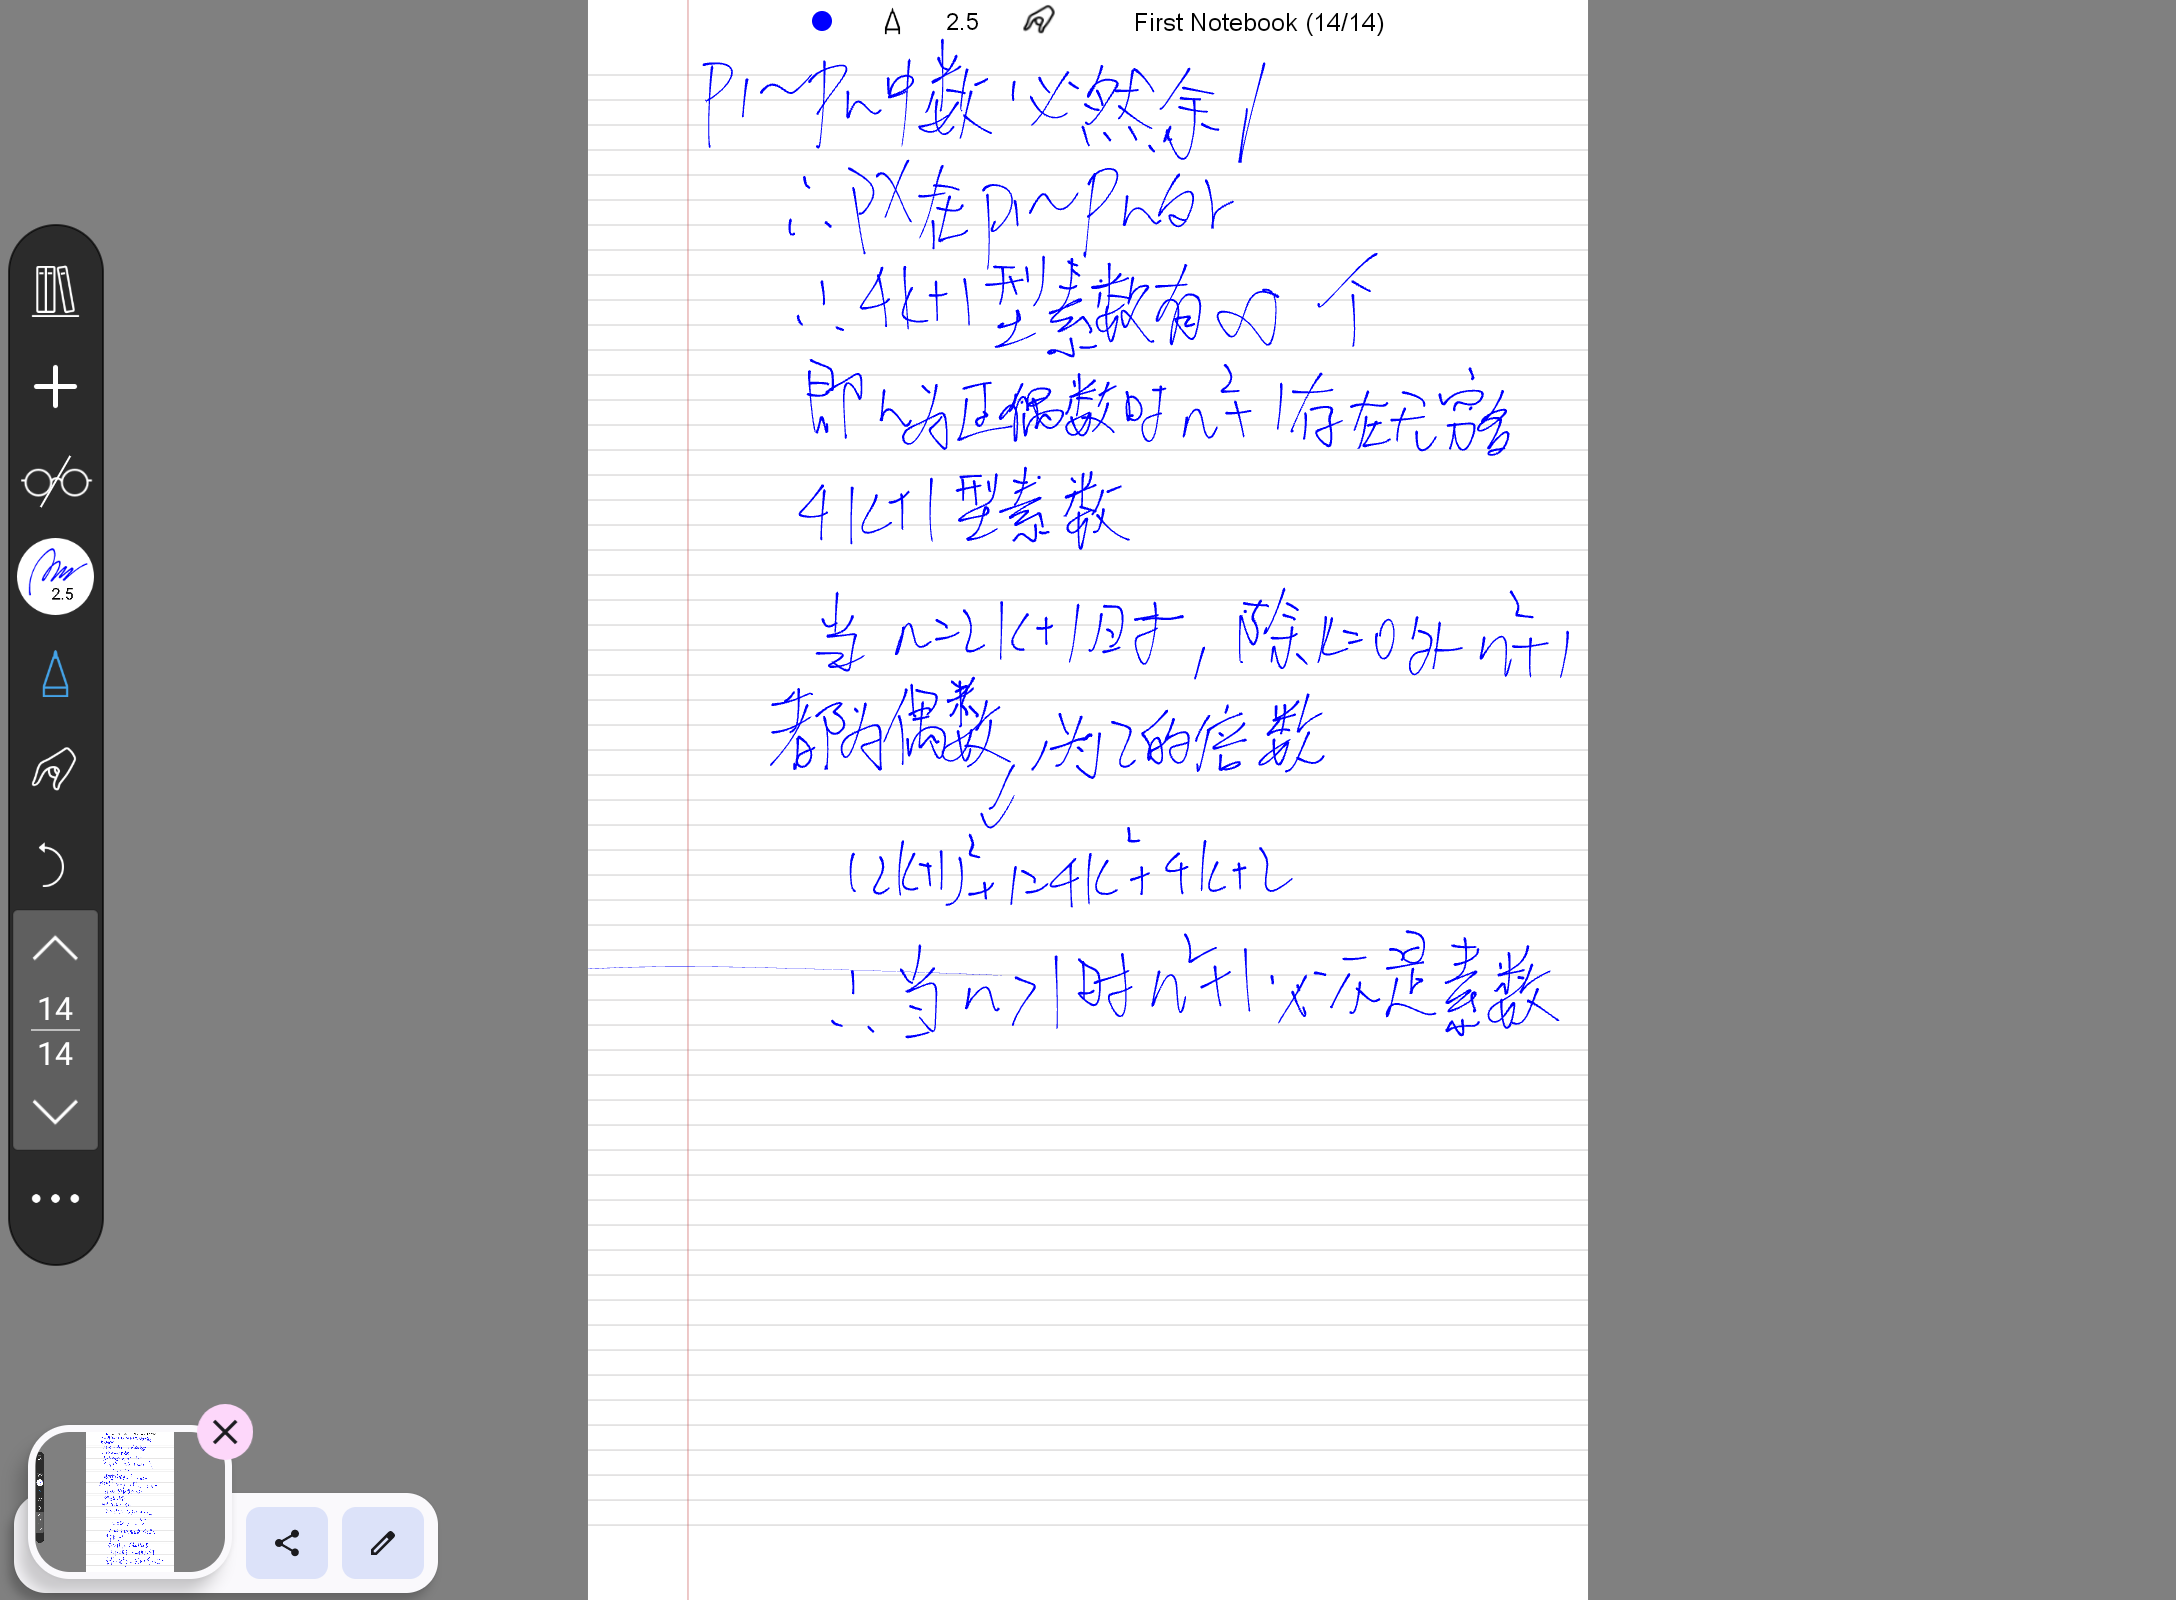 2.5 First Notebook (14/14)
P1~Pn中数必然余1
∴PX在P1~Pn外
∴4k+1型素数有∞个
即n为正偶数时n²+1存在无穷多
4k+1型素数
当n=2k+1时,除k=0外n²+1
都为偶数,为2的倍数
(2k+1)²+1=4k²+4k+2
∴当n>1时n²+1必不是素数
2.5
14
14